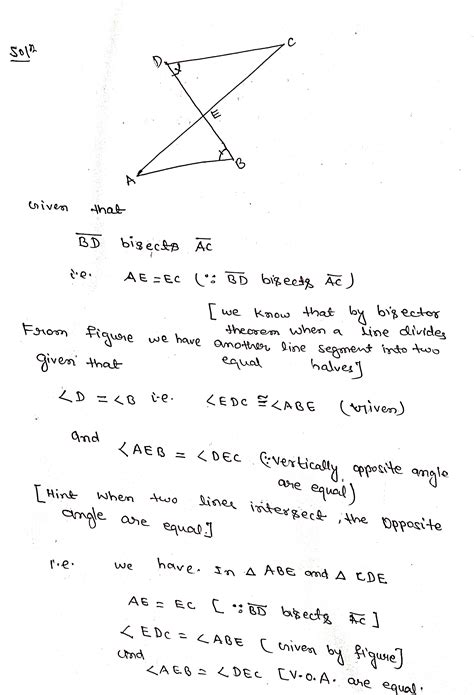 Solⁿ
D
C
E
B
A
Given that
BD bisects AC
i.e. AE = EC (∵ BD bisects AC)
[we know that by bisector
theorem when a line divides
From figure we have another line segment into two
given that equal halves]
∠D = ∠B i.e. ∠EDC ≅ ∠ABE (Given)
and
∠AEB = ∠DEC (∵ vertically opposite angle
are equal)
[Hint when two lines intersect, the opposite
angle are equal.]
i.e. we have. In △ ABE and △ CDE
AE = EC [∵ BD bisects AC]
∠EDC = ∠ABE [Given by figure]
and
∠AEB = ∠DEC [V.O.A. are equal.